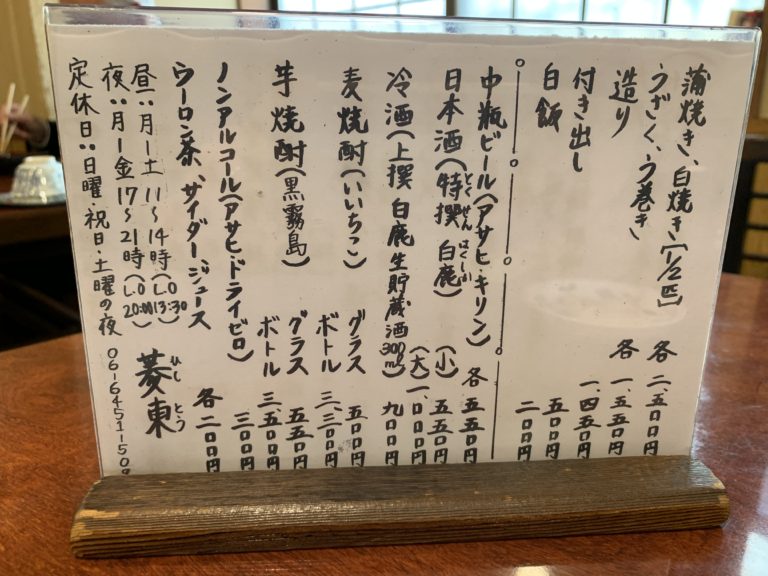 蒲焼き、白焼き〔1/2匹〕 各 二、五〇〇円
うざく、う巻き 各 一、五五〇円
造り 一、四五〇円
付き出し 五〇〇円
白飯 二〇〇円
中瓶ビール(アサヒ・キリン) 各 五五〇円
日本酒(特撰 白鹿) (小) 五五〇円
とくせん はくしか
(大) 一、〇〇〇円
冷酒(上撰 白鹿 生貯蔵酒 300ml) 九〇〇円
麦焼酎(いいちこ) グラス 五〇〇円
ボトル 三、三〇〇円
芋焼酎(黒霧島) グラス 五五〇円
ボトル 三、五〇〇円
ノンアルコール(アサヒ・ドライゼロ) 三〇〇円
ウーロン茶、サイダー、ジュース 各 二〇〇円
昼‥月ー土 11〜14時(L.O 13:30)
夜‥月ー金 17〜21時(L.O 20:00)
定休日‥日曜・祝日・土曜の夜
菱東
ひし とう
06-6451-509